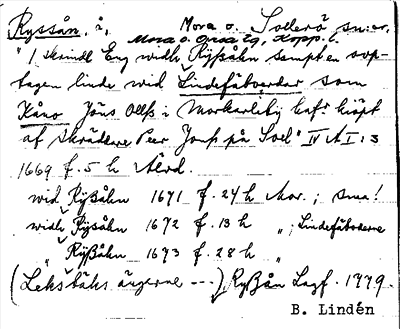 Ryssån, å, Mora o. Sollerö snr.
Mora o Orsa tg, Kopp. l.
"1 skrindl Eng widh Rÿßåhn sampt en vp-
tagen linde wid Lindefäbodar som
Kåno Jöns Olss i Morkarleby hafr kiöpt
af skräddare Peer Jonss på Soel" IV A I: 3
1669 f. 5 h Ålvd.
wid Rÿßåhn 1671 f. 24 h Mor.; sma!
widh Rÿsåhn 1672 f. 13 h " ; Lindefäboderne
" Rÿßåhn 1673 f. 28 h "
(Leks täks ängerne ---), Ryßån Lagf. 1779.
B. Lindén